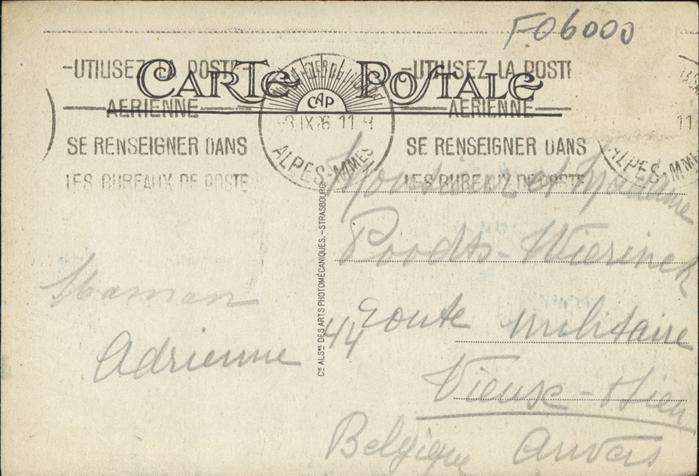 FO6000
CARTE POSTALE
-UTILISEZ LA POSTE
AERIENNE
SE RENSEIGNER DANS
LES BUREAUX DE POSTE
CAP
IX 26 11 H
ALPES-MMES
-UTILISEZ LA POSTE
AERIENNE
SE RENSEIGNER DANS
LES BUREAUX DE POSTE
11
ALPES-MMES
Cie ALSne DES ARTS PHOTOMÉCANIQUES.-STRASBOURG
Maman
Adrienne
Monsieur et Madame
Poodts-Wierinck
44 Route militaire
Vieux-Dieu
Belgique Anvers